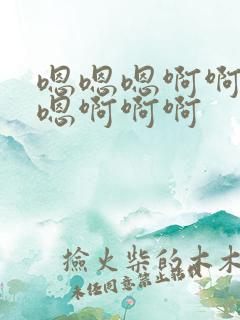 嗯嗯嗯啊啊
嗯啊啊啊
撿火柴的木木
未经同意禁止转载